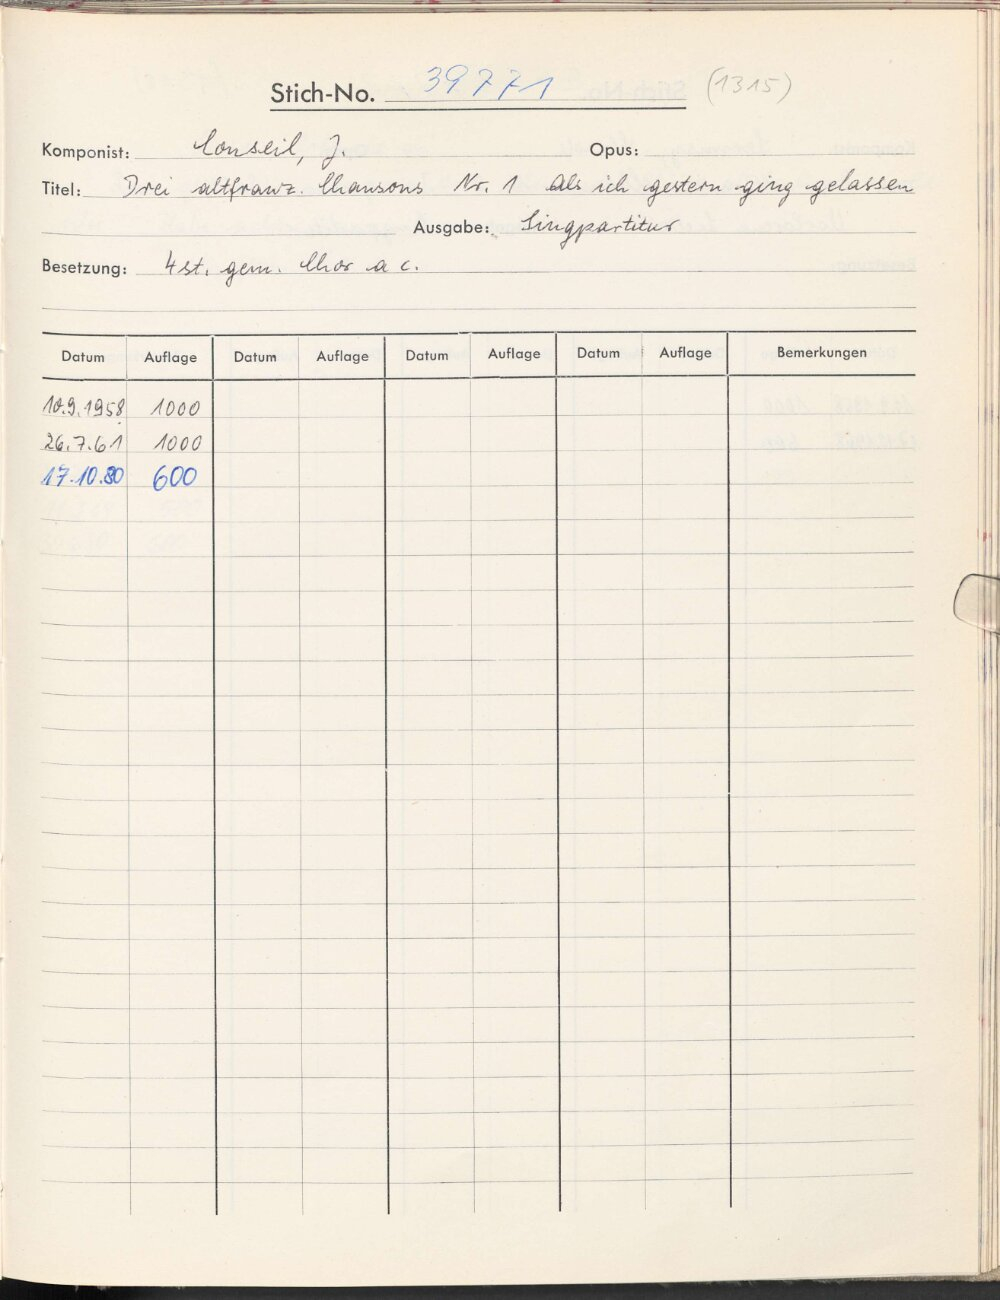 Stich-No. 39771 (1315)
Komponist: Conseil, J. Opus:
Titel: Drei altfranz. Chansons Nr. 1 Als ich gestern ging gelassen
Ausgabe: Singpartitur
Besetzung: 4st. gem. Chor a c.
Datum Auflage Datum Auflage Datum Auflage Datum Auflage Bemerkungen
10.9.1958 1000
26.7.61 1000
17.10.80 600